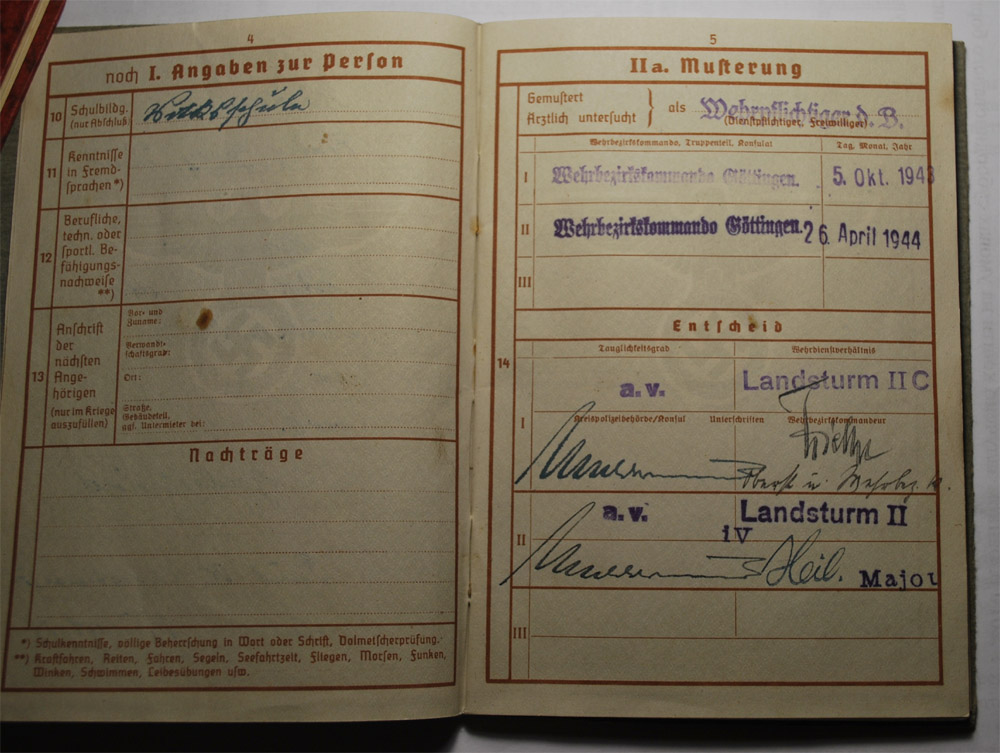 4
noch I. Angaben zur Person
10 Schulbildg. (nur Abschluß) Volksschule
11 Kenntnisse in Fremdsprachen *)
12 Berufliche, techn. oder sportl. Befähigungsnachweise **)
13 Anschrift der nächsten Angehörigen (nur im Kriege auszufüllen)
Vor- und Zuname:
Verwandtschaftsgrad:
Ort:
Straße, Gebäudeteil, ggf. Untermieter bei:
Nachträge
*) Schulkenntnisse, völlige Beherrschung in Wort oder Schrift, Dolmetscherprüfung.
**) Kraftfahren, Reiten, Fahren, Segeln, Seefahrtzeit, Fliegen, Morsen, Funken,
Winken, Schwimmen, Leibesübungen usw.
5
II a. Musterung
Gemustert
Ärztlich untersucht } als Wehrpflichtiger d. B.
(Dienstpflichtiger, Freiwilliger)
Wehrbezirkskommando, Truppenteil, Konsulat Tag, Monat, Jahr
I Wehrbezirkskommando Göttingen. 5. Okt. 1943
II Wehrbezirkskommando Göttingen. 26. April 1944
III
Entscheid
14
Tauglichkeitsgrad Wehrdienstverhältnis
I a.v. Landsturm II C
Kreispolizeibehörde/Konsul Unterschriften Wehrbezirkskommandeur
Oberst u.
II a.v. Landsturm II
IV
Heil. Major
III